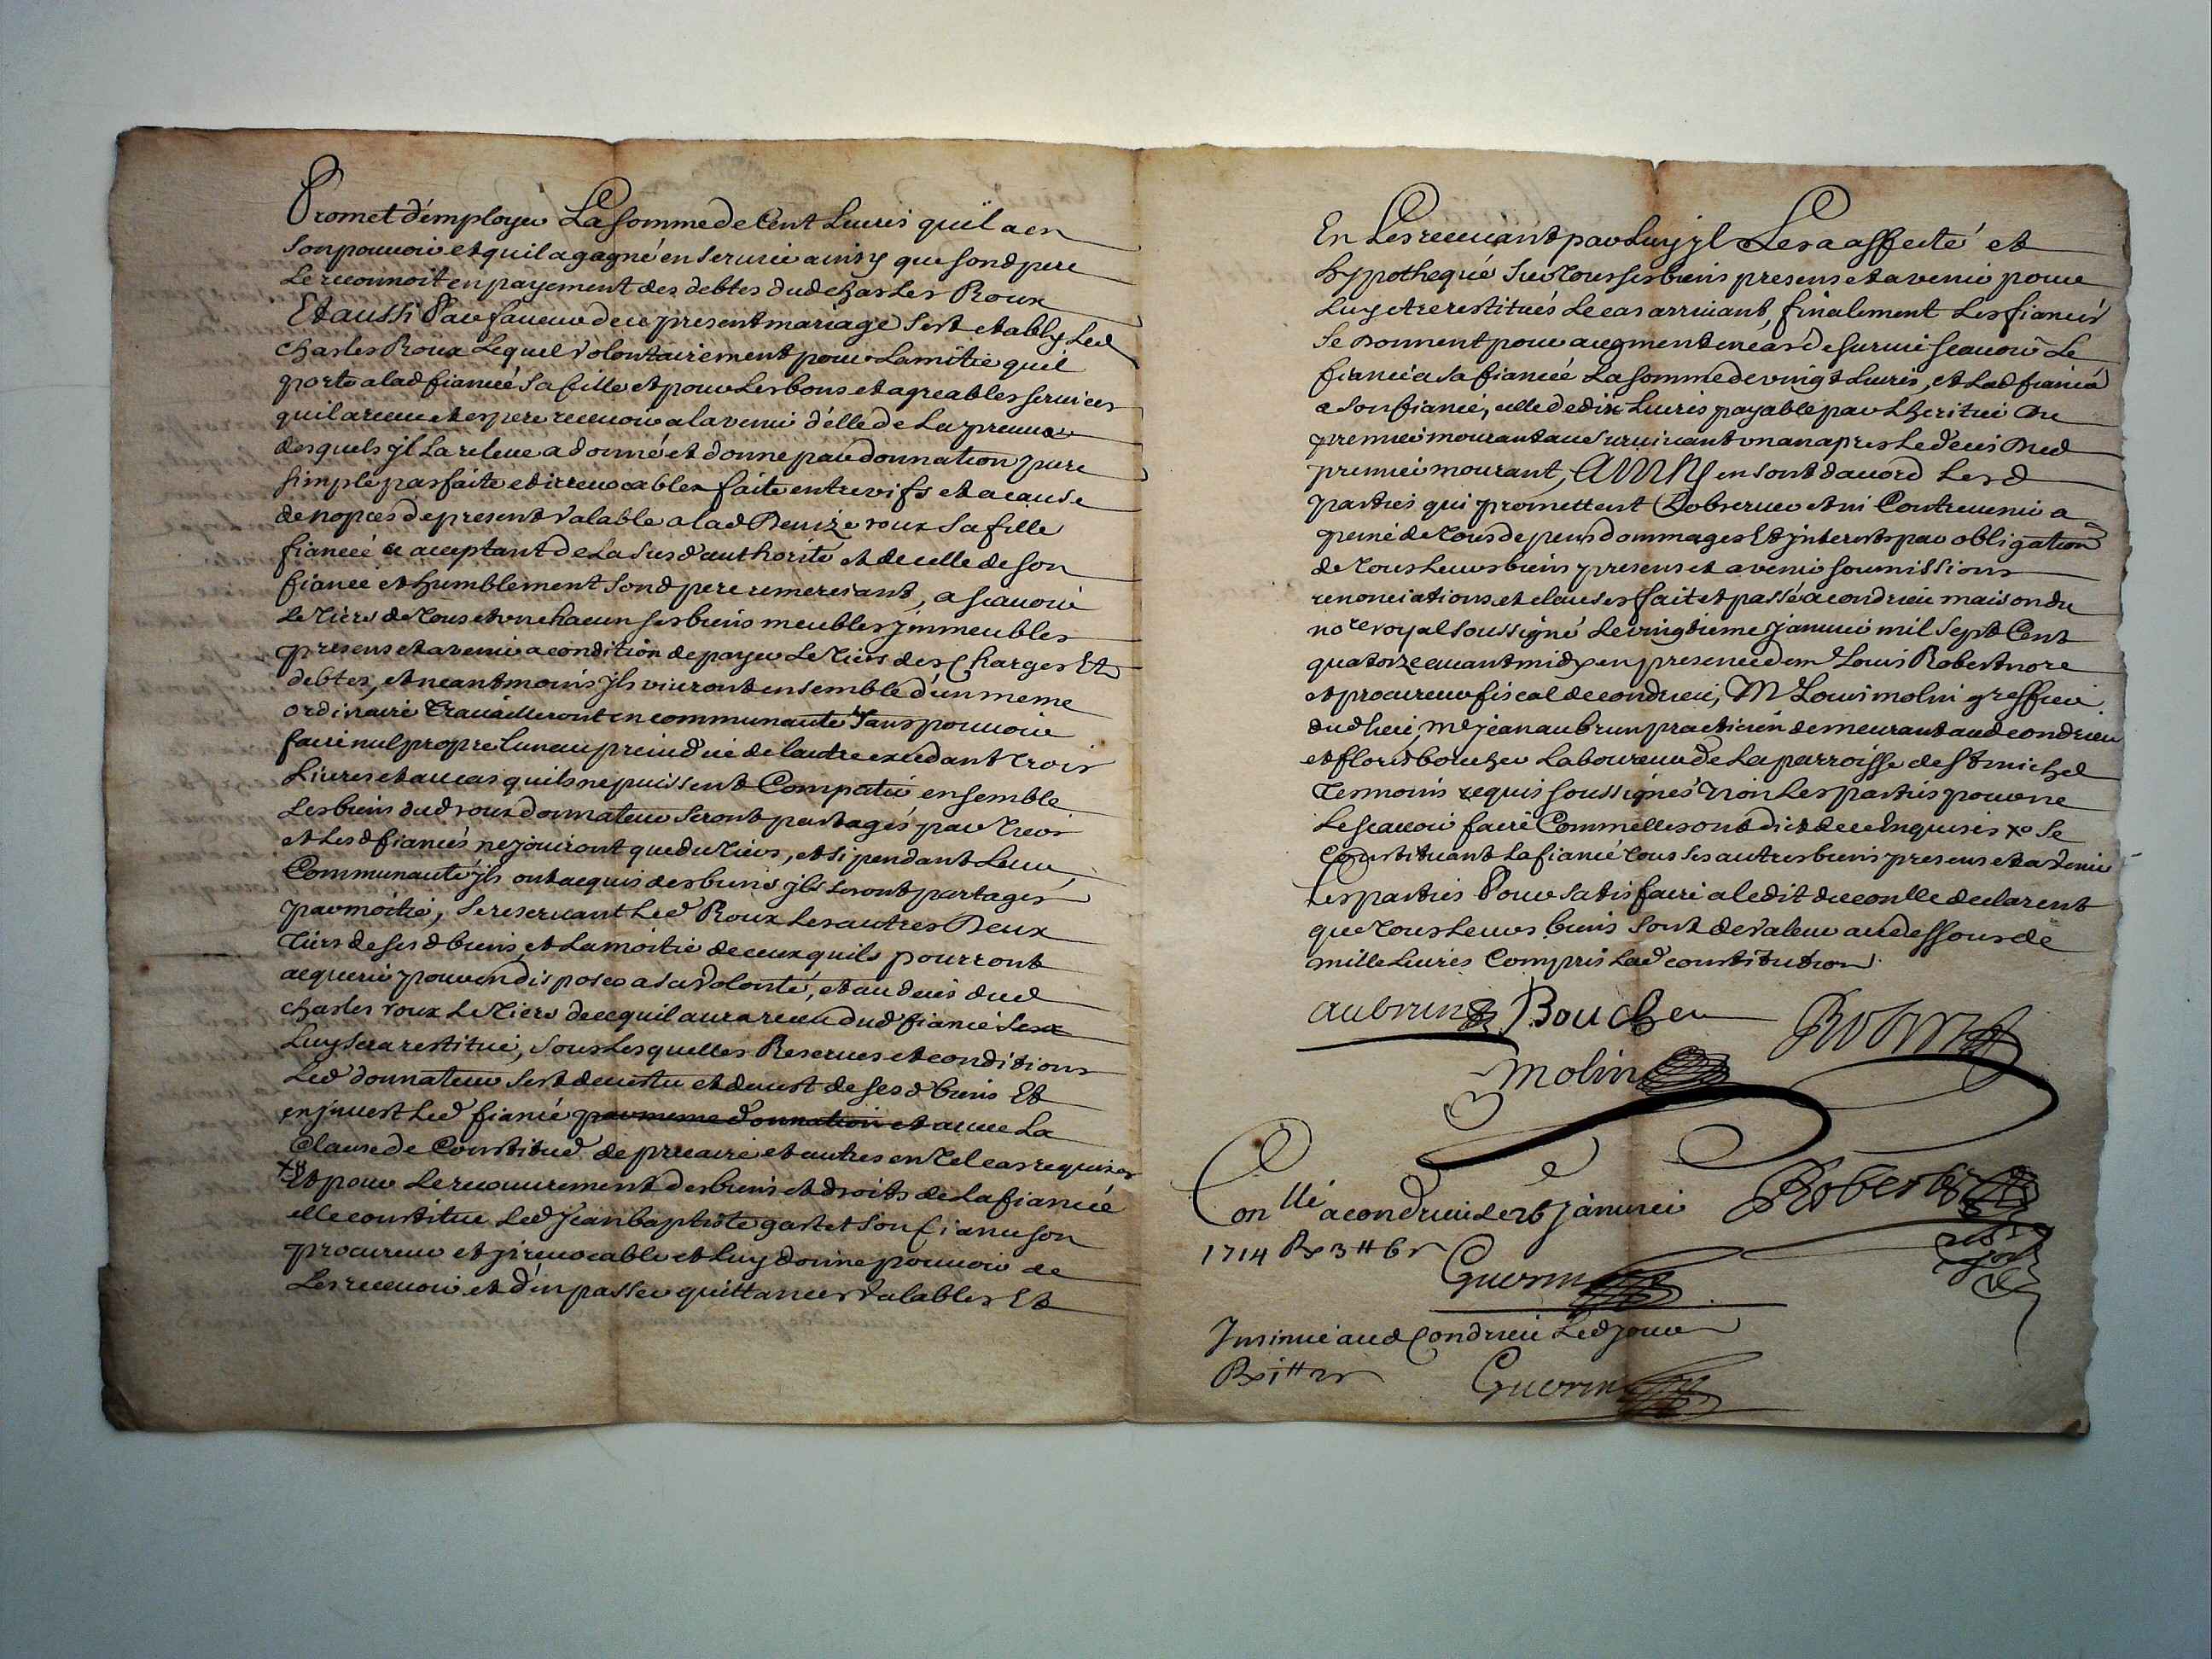 Promet d'employer La somme de Cent Livres quil a en
son pouvoir et quil a gagné en service ainsy que sond pere
Le reconnoit en payement des debtes dud charles Roux
Et aussi Par faveur de ce present mariage s'est estably Led
charles Roux Lequel volontairement pour Lamitié quil
porte a lad fiancée sa fille et pour Les bons et agreables services
quil a receu et espere recevoir a lavenir d'elle de La preuve
desquels jl La releve a donné et donne par donnation pure
simple parfaite et irrevocable faite entre vifs et a cause
de nopces de present valable a lad Denize roux sa fille
fiancée acceptant de La susd authorité et de celle de son
fiancé et humblement sond pere remerciant, a scavoir
Le tiers de tous et un chacun ses biens meubles jmmeubles
presens et avenir a condition de payer Le tiers des Charges Et
debtes, et neantmoins jls vivront ensemble d'un meme
ordinaire travailleront en communauté sans pouvoir
faire nul propre Lun au prejudice de lautre excedant trois
Livres et au cas quils ne puissent Compatir ensemble
Les biens dud roux donnateur seront partagés par tiers
et Lesd fiancés ne jouiront que du tiers, et si pendant Leur
Communauté jls ont acquis des biens jls seront partagés
par moitié, se reservant Led Roux Les autres Deux
tiers de sesd biens et La moitié de ceux quils pourront
acquerir pour en disposer a sa volonté, et au deces dud
charles roux Le tiers de ce quil aura receu dud fiancé
Luy sera restitué, sous Lesquelles Reserves et conditions
Led donnateur s'est devestu et devest de sesd biens Et
en jnvest Led fiancé par meme donnation et avec La
Clause de Constitut de precaire et autres en tel cas requises
xo Et pour Le recouvrement des biens et droits de La fiancée
elle constitue Led Jean baptiste gast et son fiancé son
procureur et jrrevocable et Luy donne pouvoir de
Les recevoir et d'en passer quittances valables Et
En Les recevant par Luy jl Les a affecté et
hypothequé sur tous ses biens presens et avenir pour
Luy etre restitués Le cas arrivant, finalement Les fiancés
se donnent pour augment en cas de survie scavoir Le
fiancé a sa fiancée La somme de vingt Livres, et Lad fiancée
a son fiancé, celle de dix Livres payable par Lheritier du
premier mourant au survivant un an apres Le deces dud
premier mourant, Ainsy en sont daccord Lesd
parties qui promettent Lobserver et ni Contrevenir a
peine de tous depens dommages Et jnterests par obligation
de tous Leurs biens presens et avenir soumissions
renonciations et clauses fait et passé a condrieu maison du
nore royal soussigné Le vingtieme Janvier mil sept Cent
quatorze avant midy en presence de me Louis Robert nore
et procureur fiscal de condrieu, Me Louis molin greffier
dud lieu, Me jean aubrun practicien demeurant aud condrieu
et floris boucher Laboureur de La parroisse de St michel
temoins requis soussignés non Les parties pour ne
Le scavoir faire Comme elles ont dict de ce Enquises xo se
Constituant La fiancée tous ses autres biens presens et avenir
Les parties Pour satisfaire a ledit du conlle declarent
que tous Leurs biens sont de valeur au dessous de
mille Livres Compris Lad constitution
aubrun Boucher Robert
molin
Conllé a condrieu Le 26 Janvier
Robert
1714 Rx 3 ₶ 6 s
Guerin
Jnsinué aud Condrieu Led jour
Rx 1 ₶ 2 s
Guerin